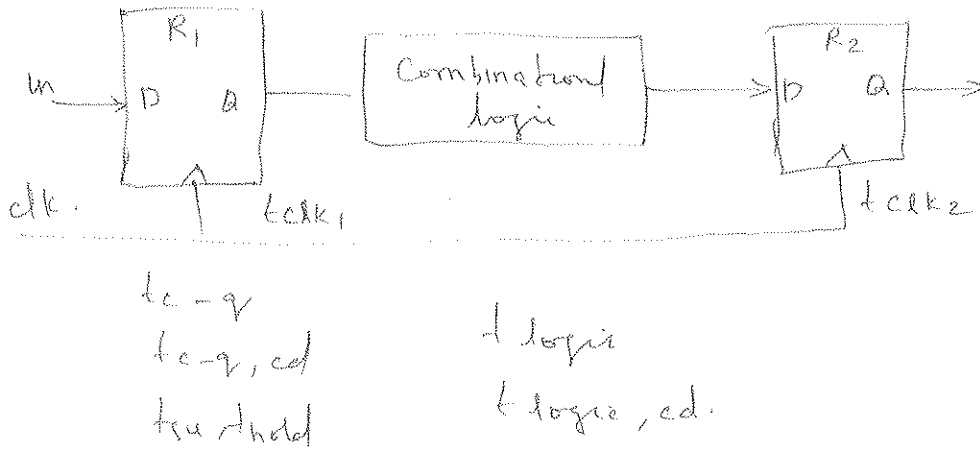 R1
R2
In
D Q
Combinational
logic
D Q
clk.
tclk1
tclk2
tc-q
tc-q, cd
t logic
t logic, cd.